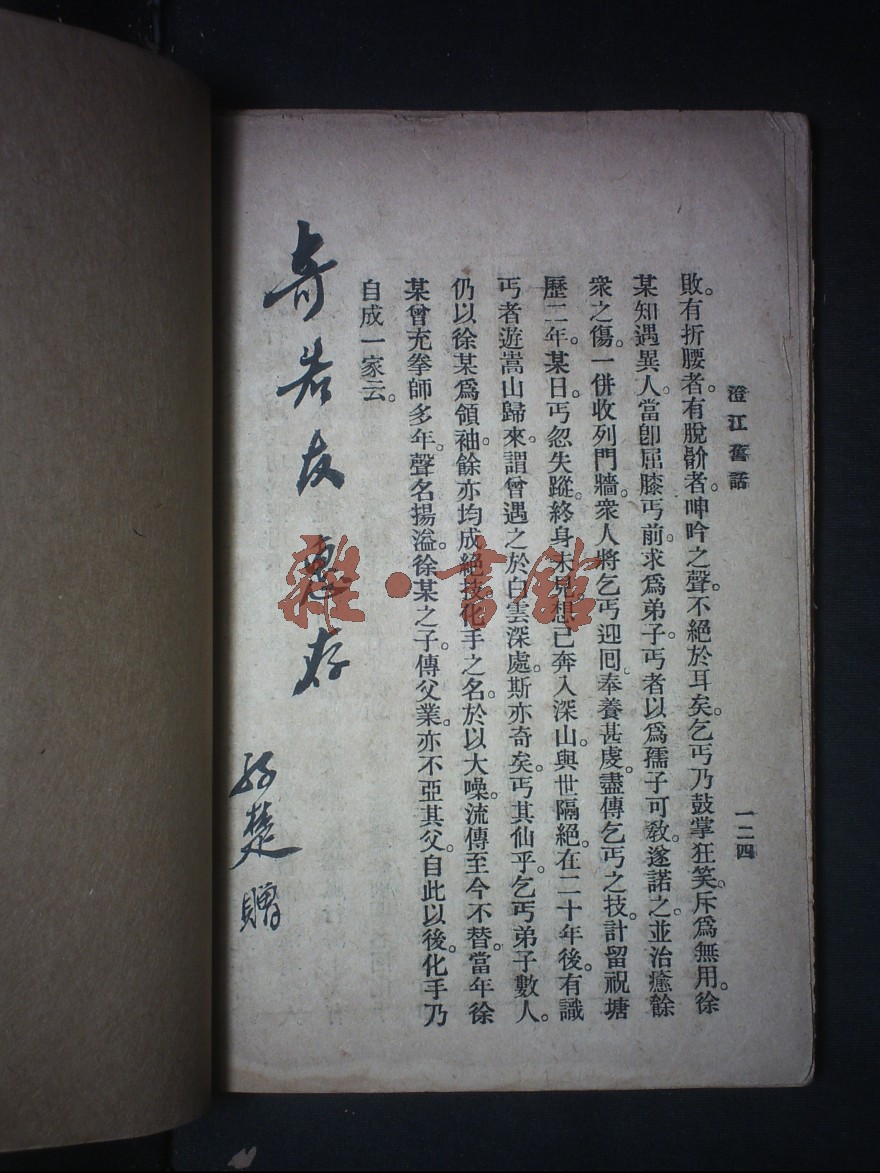 澄江舊話
一二四
敗。有折腰者。有脫骱者。呻吟之聲。不絕於耳矣。乞丐乃鼓掌狂笑。斥爲無用。徐
某知遇異人。當卽屈膝丐前。求爲弟子。丐者以爲孺子可敎。遂諾之。並治癒餘
衆之傷。一併收列門牆。衆人將乞丐迎囘。奉養甚虔。盡傳乞丐之技。計留祝塘
歷二年。某日。丐忽失蹤。終身未見。想已奔入深山。與世隔絕。在二十年後。有識
丐者遊嵩山歸來。謂曾遇之於白雲深處。斯亦奇矣。丐其仙乎。乞丐弟子數人。
仍以徐某爲領袖。餘亦均成絕技。化手之名。於以大噪。流傳至今不替。當年徐
某曾充拳師多年。聲名揚溢。徐某之子。傳父業。亦不亞其父。自此以後。化手乃
自成一家云。
奇岩友惠存
楚贈
雜·書館